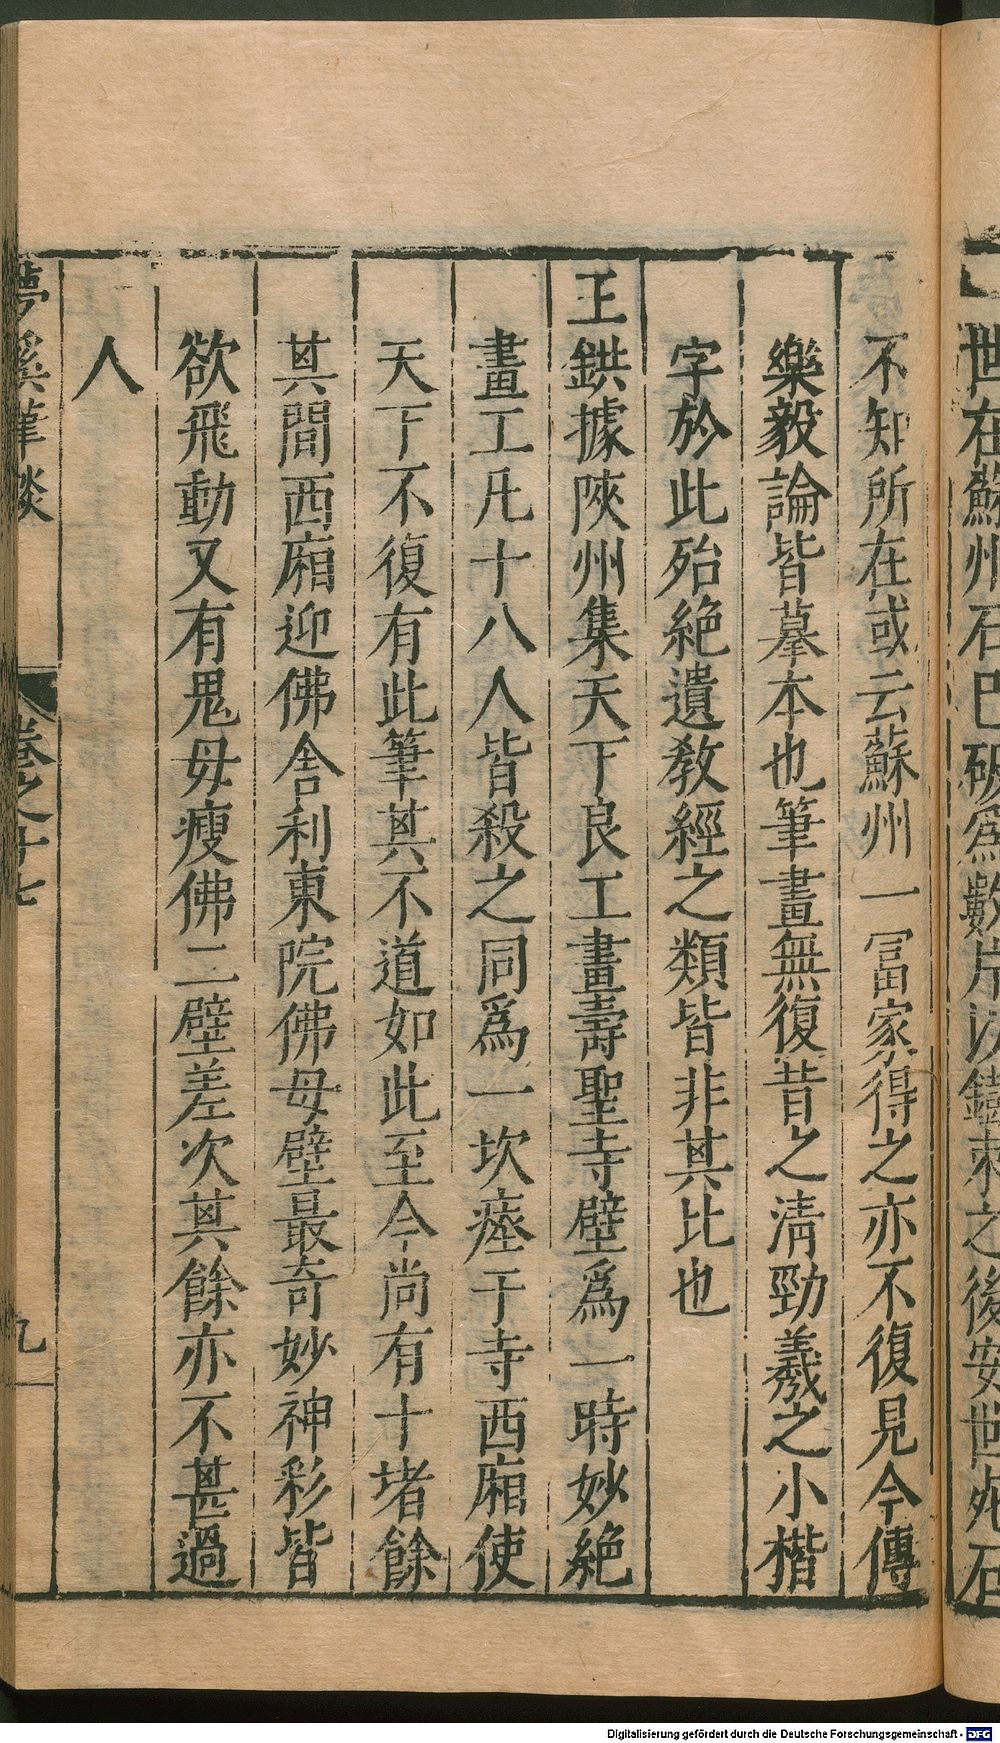 世在蘇州石已破爲數片以鐵束之後安世死石
不知所在或云蘇州一冨家得之亦不復見今傳
樂毅論皆摹本也筆畫無復昔之淸勁羲之小楷
字於此殆絶遺敎經之類皆非其比也
王鉷據陜州集天下良工畫壽聖寺壁爲一時妙絶
畫工凡十八人皆殺之同爲一坎瘞于寺西廂使
天下不復有此筆其不道如此至今尚有十堵餘
其間西廂迎佛舍利東院佛母壁最奇妙神彩皆
欲飛動又有鬼母瘦佛二壁差次其餘亦不甚過
人
夢溪筆談 卷之十七 九
Digitalisierung gefördert durch die Deutsche Forschungsgemeinschaft - DFG